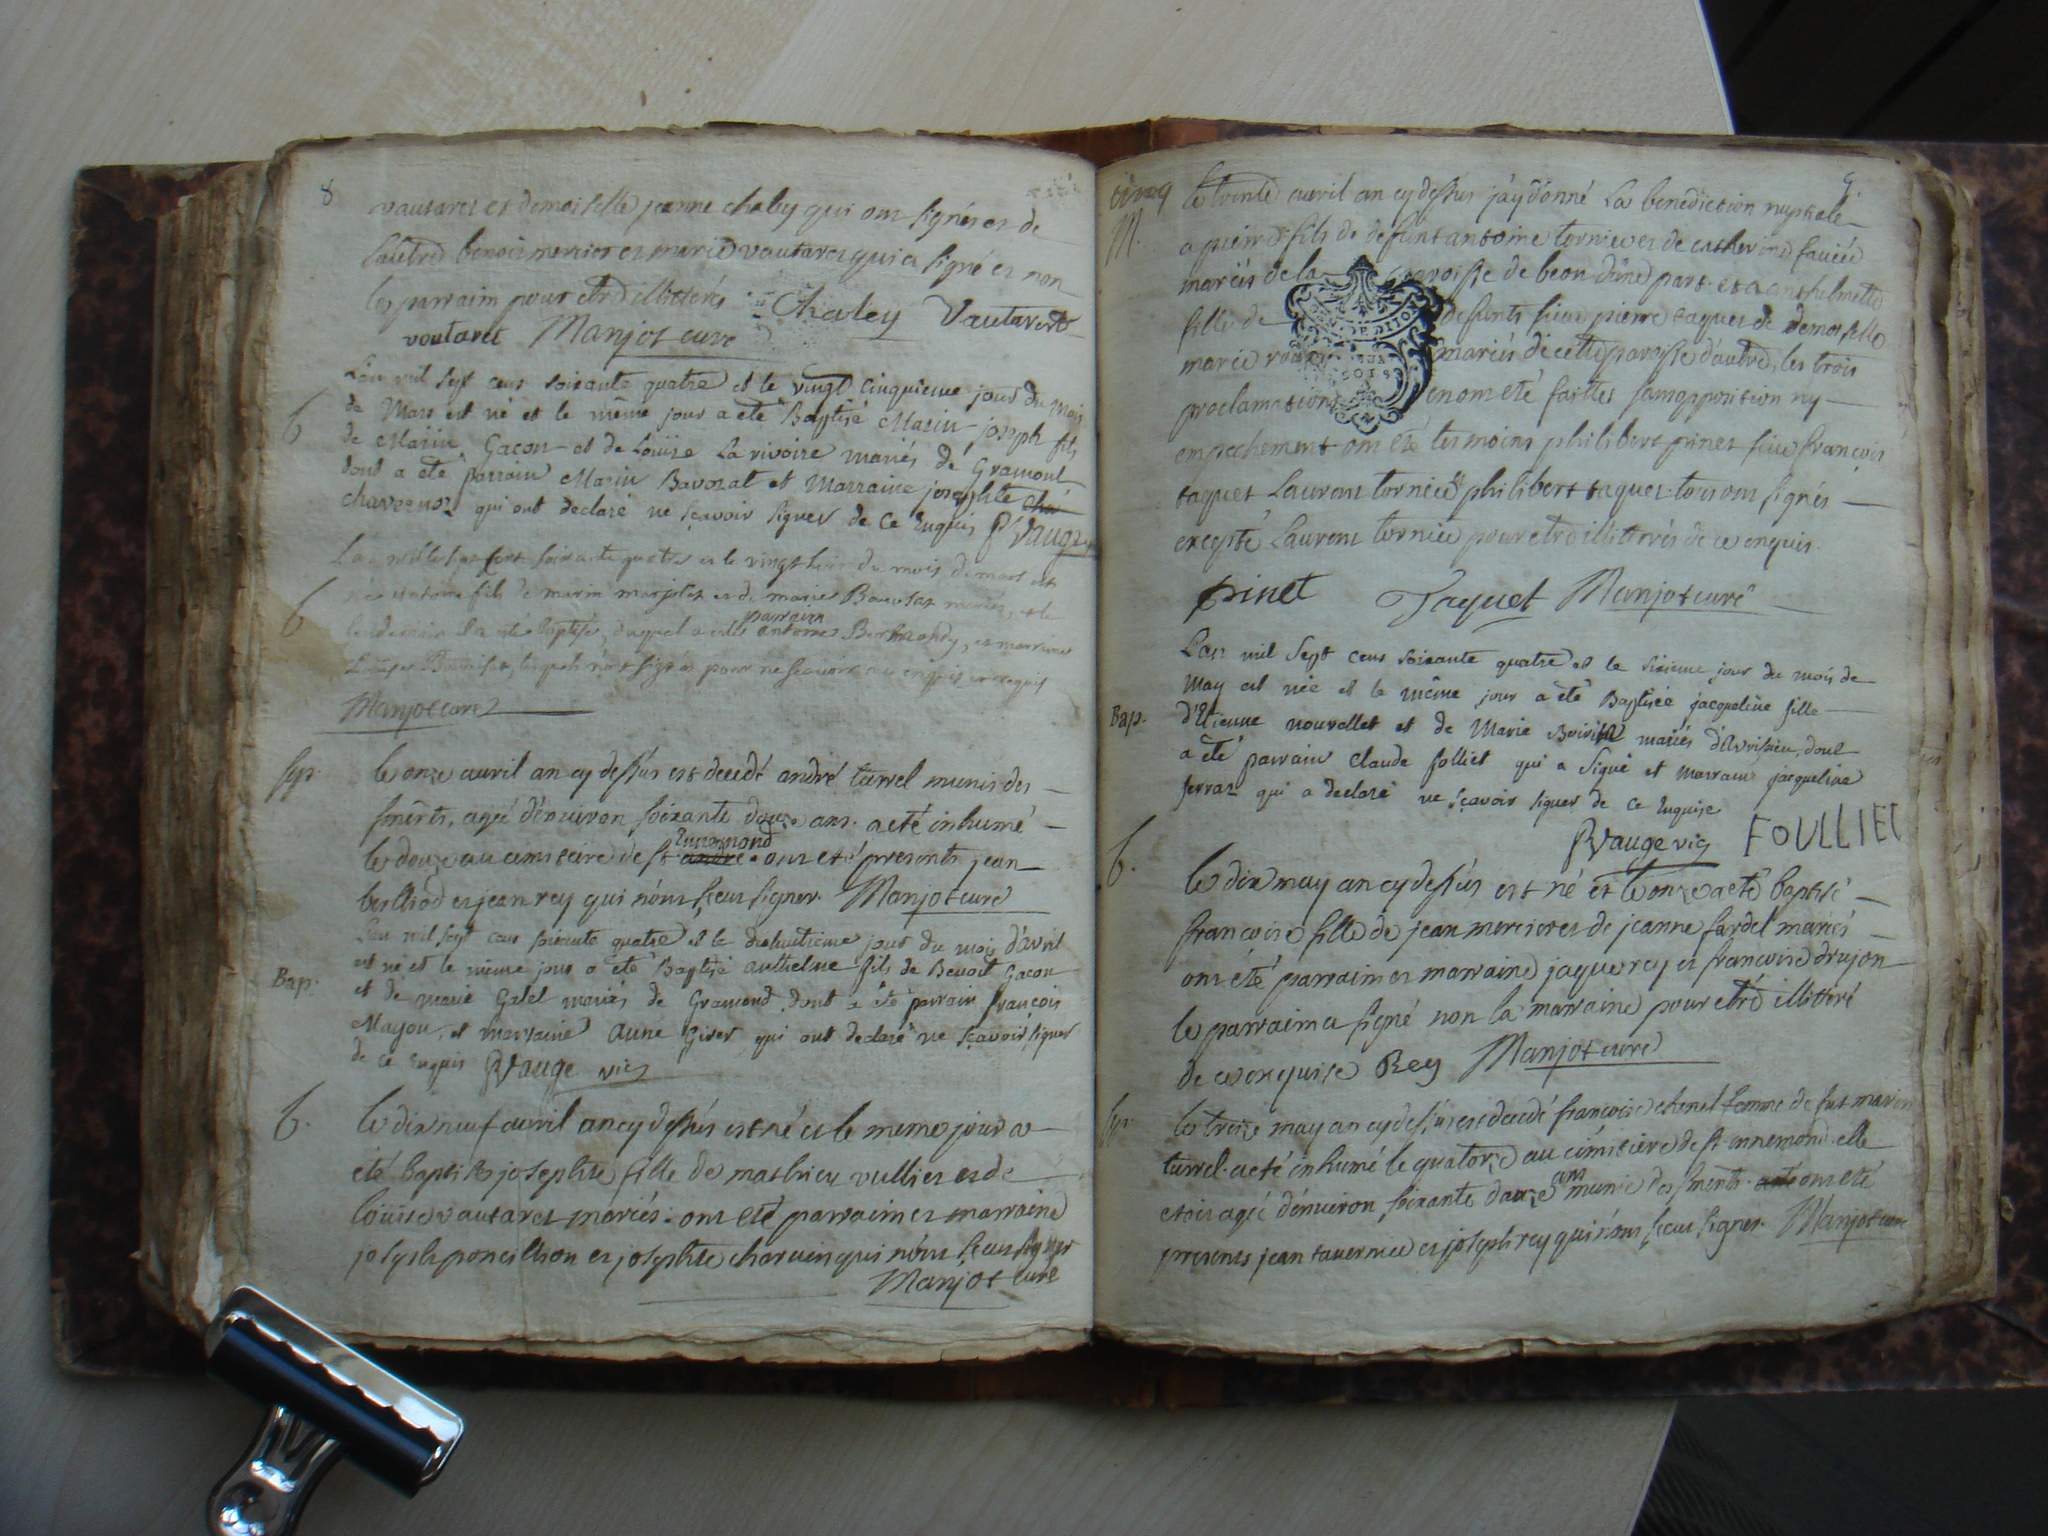 8
vautaret et demoiselle jeanne chaley qui ont signés et de
lautre benoit mercier et marie vautaret qui a signé et non
le parraim pour etre illitterés Chaley Vautaret
voutaret Manjot curé
L'an mil sept cens soixante quatre et le vingt cinquieme jour du mois
b
de Mars est né et le même jour a eté Baptisé Marin joseph fils
de Marin Gacon et de Louise Larivoire mariés de Gramont
dont a eté parrain Marin Bavozat et Marraine josephte cha
qui ont declaré ne sçavoir signer de ce Enquis PVauge
L'an mille sept cent soixante quatre et le vingt du mois de mars est
b
né antoine fils de marin et de marie mariés, et le
lendemain a été baptisé, duquel a été parrain antoine et marraine
n'ont signés pour ne sçavoir enquis et requis
Manjot curé
Sep.
le onze avril an cy dessus est decedé andré turrel munis des
smen͞ts, agé d'environ soixante douze ans. a eté inhumé
le douze au cimitiere de st andre Ennemond ont eté presents jean
berlliod et jean rey qui n'ont sceu signer. Manjot curé
L'an mil sept cens soixante quatre et le dixhuitieme jour du mois d'avril
est né et le même jour a eté Baptisé anthelme fils de Benoit Gacon
Bap.
et de marie Galel mariés de Gramond dont a eté parrain françois
Mayou, et marraine anne qui ont declaré ne sçavoir signer
de ce Enquis PVauge vic
b.
le dix neuf avril an cy dessus est né et le meme jour a
eté baptisé josephte fille de mathieu vullier et de
Louise vautaret mariés. ont eté parraim et marraine
joseph poncillion et josephte charvin qui n'ont sceu signer
Manjot curé
9.
cinq
le trente avril an cy dessus j'ay donné La benediction nuptiale
M.
a pierre fils de defunt antoine tornier et de catherine
mariés de la paroisse de beon d'une part. et a anthelmette
fille de defunts sieur pierre taquet de demoiselle
marie mariés de cette paroisse d'autre, les trois
proclamations en ont eté faittes sans opposition ny
empechement ont eté tesmoins philibert pinet sieur françois
taquet Laurent tornier philibert taquet. tous ont signés
excepté Laurent tornier pour etre illitterés de ce enquis.
pinet Taquet Manjot curé
L'an mil sept cens soixante quatre et le sixieme jour du mois de
May est née et le même jour a été Baptisée jacqueline fille
Bap.
d'Etienne nouvellet et de Marie mariés d'Avrissieu, dont
a été parrain claude folliet qui a signé et marraine jacqueline
ferraz qui a declaré ne sçavoir signer de ce Enquise
PVauge vic FOULLIET
b.
le dix may an cy dessus est né et le onze a eté baptisé
francoise fille de jean mercier et de jeanne fardel mariés
ont été parraim et marraine jaque rey et francoise drujon
le parraim a signé non la marraine pour etre illitteré
de ce enquise Rey Manjot curé
Sep.
le treize may an cy dessus est decedé francoise chenel femme de fut marin
turrel. a eté inhumé le quatorze au cimitiere de st. ennemond. elle
etois agée d'environ soixante douze ans munie des smen͞ts. ont eté
presents jean tavernier et joseph rey qui n'ont sceu signer. Manjot curé